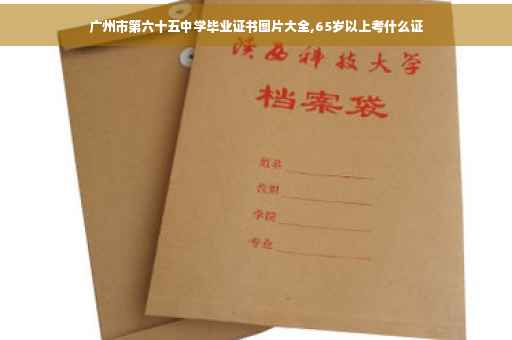 广州市第六十五中学毕业证书图片大全,65岁以上考什么证
陕西科技大学
档案袋
姓名
学院
专业